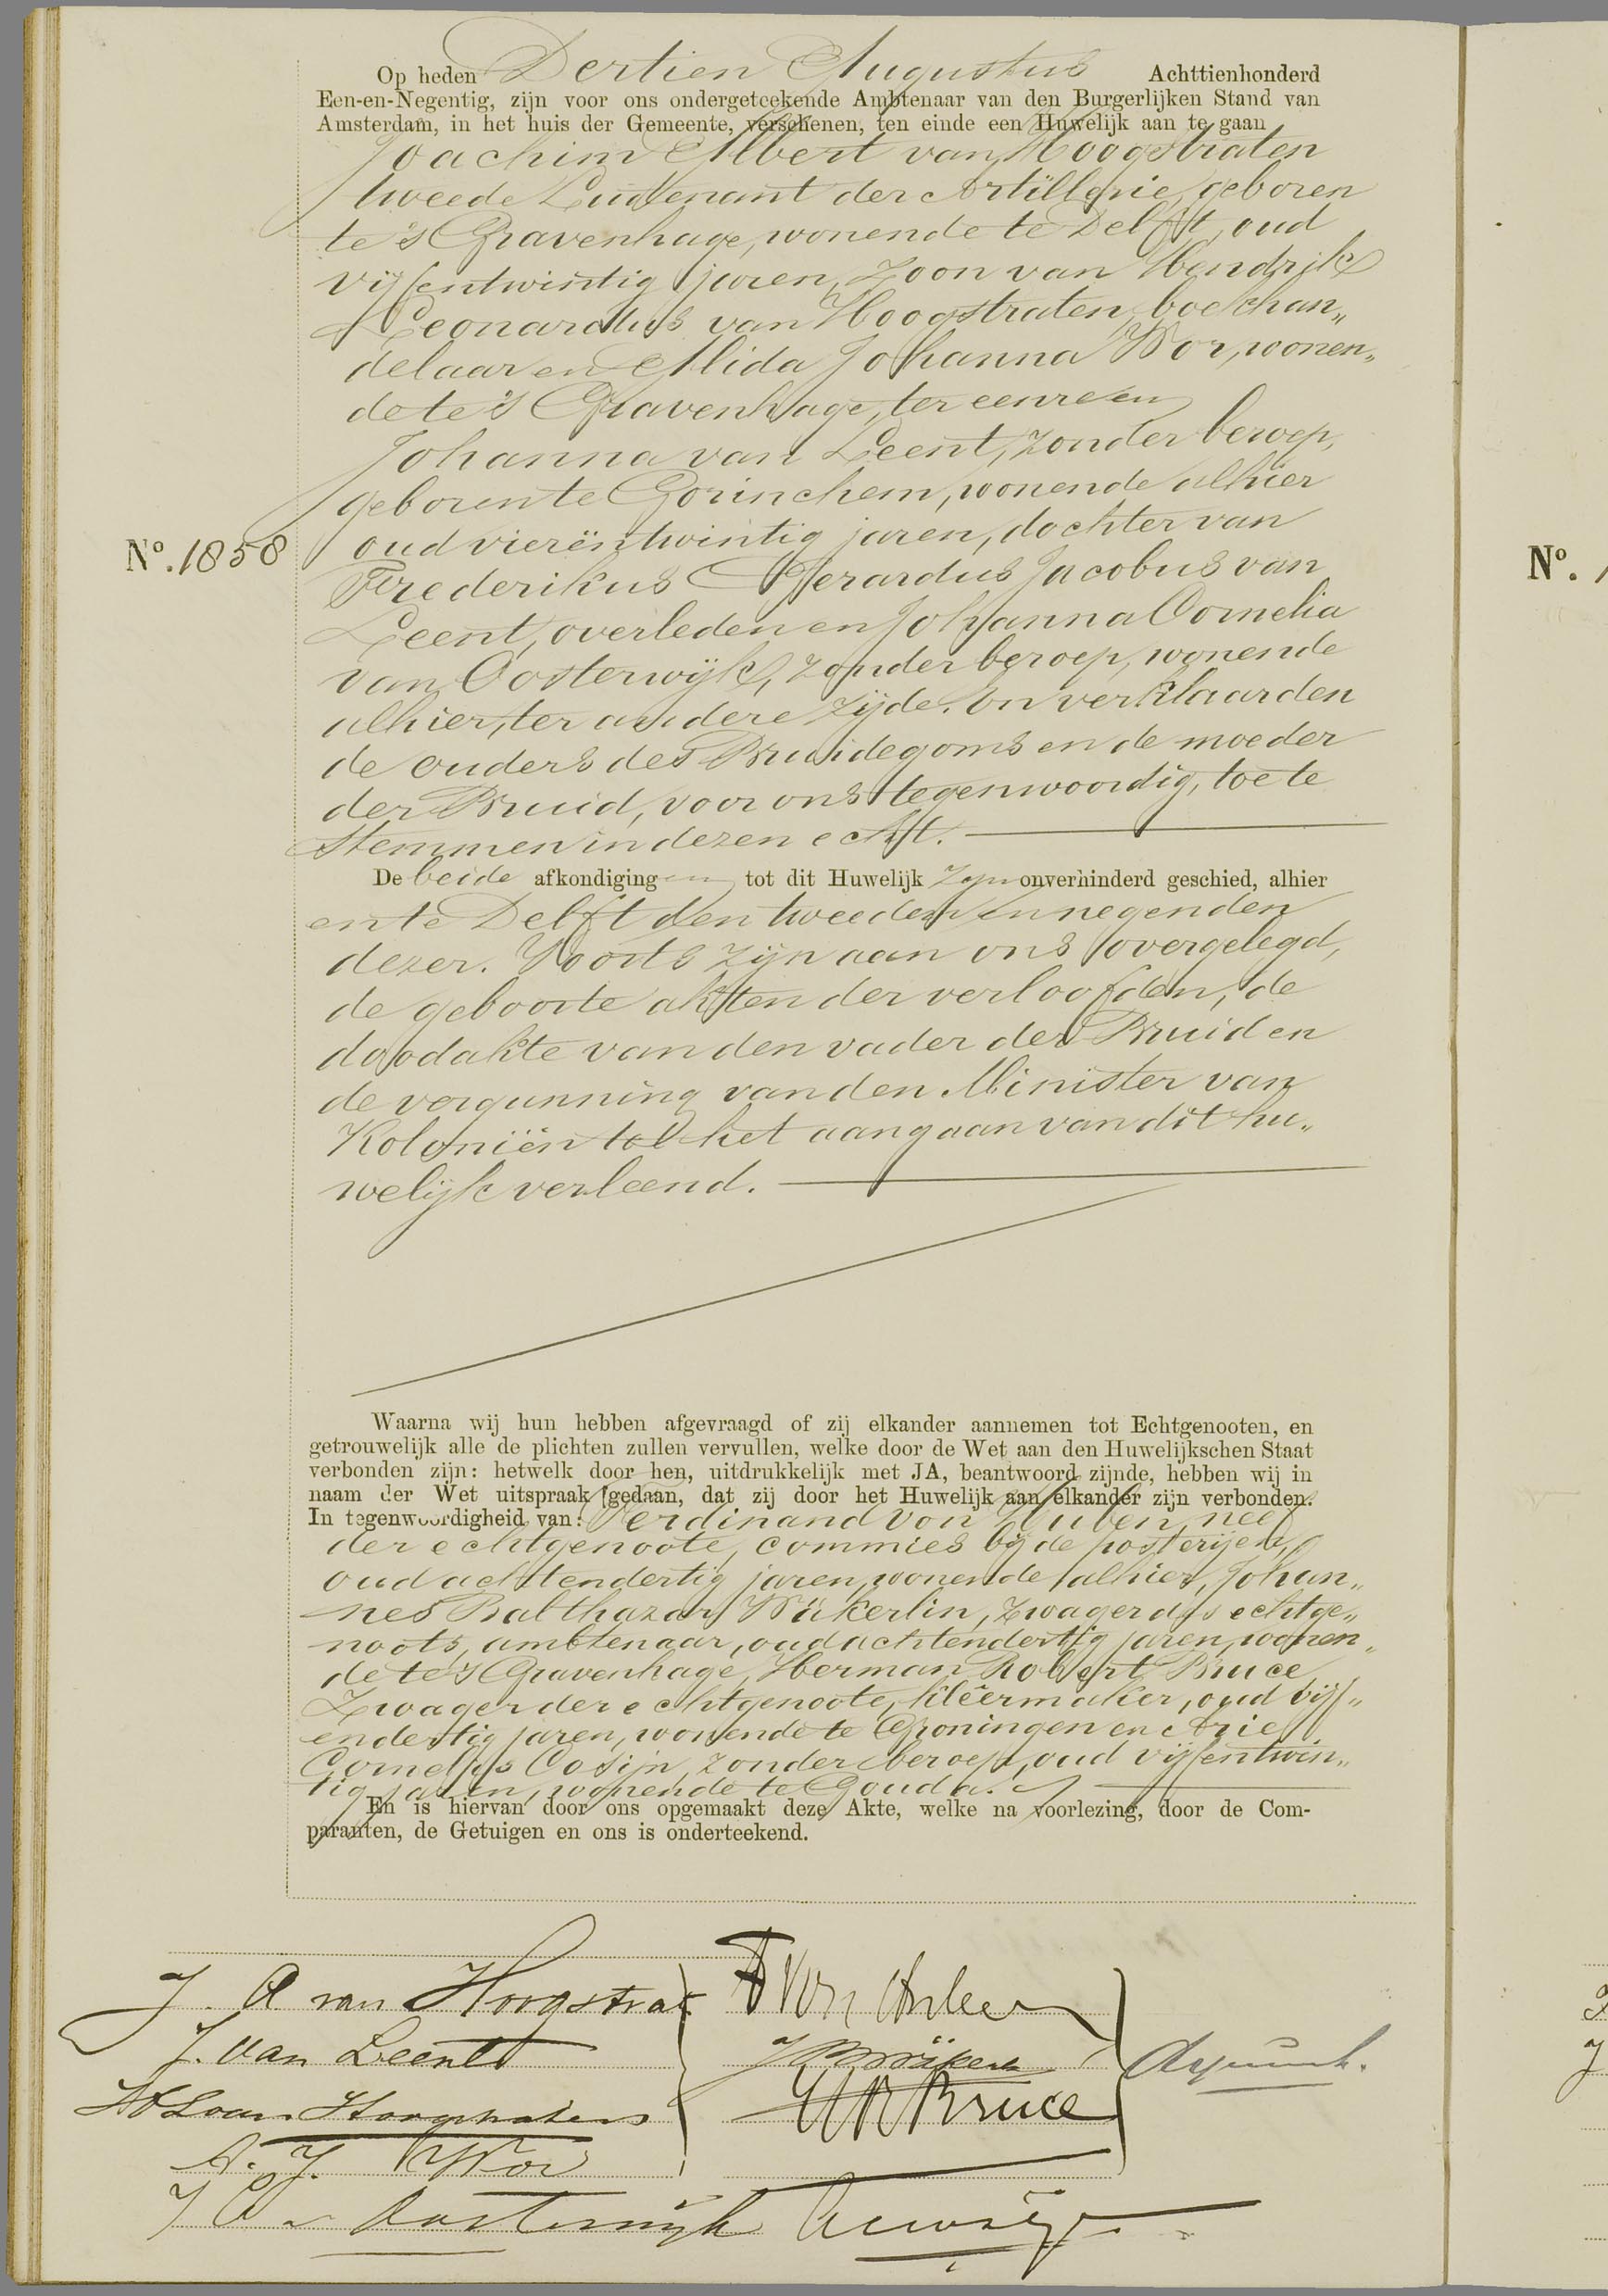 Op heden Dertien Augustus Achttienhonderd
Een-en-Negentig, zijn voor ons ondergeteekende Ambtenaar van den Burgerlijken Stand van
Amsterdam, in het huis der Gemeente, verschenen, ten einde een Huwelijk aan te gaan
Joachim Albert van Hoogstraten
tweede Luitenant der Artillerie, geboren
te 's Gravenhage, wonende te Delft, oud
vijfentwintig jaren, zoon van Hendrik
Leonardus van Hoogstraten, boekhan„
delaar en Alida Johanna Wor, wonen„
de te 's Gravenhage, ter eenre en
Johanna van Leent, zonder beroep,
geboren te Gorinchem, wonende alhier
oud vierëntwintig jaren, dochter van
Nº. 1858
Frederikus Gerardus Jacobus van
Leent, overleden en Johanna Cornelia
van Oosterwijk, zonder beroep, wonende
alhier, ter andere zijde. En verklaarden
de ouders des Bruidegoms en de moeder
der Bruid, voor ons tegenwoordig, toe te
stemmen in dezen echt.
De beide afkondigingen tot dit Huwelijk zijn onverhinderd geschied, alhier
en te Delft den tweeden en negenden
dezer. Voorts zijn aan ons overgelegd,
de geboorte akten der verloofden, de
doodakte van den vader der Bruid en
de vergunning van den Minister van
Koloniën tot het aangaan van dit hu„
welijk verleend.
Waarna wij hun hebben afgevraagd of zij elkander aannemen tot Echtgenooten, en
getrouwelijk alle de plichten zullen vervullen, welke door de Wet aan den Huwelijkschen Staat
verbonden zijn: hetwelk door hen, uitdrukkelijk met JA, beantwoord zijnde, hebben wij in
naam der Wet uitspraak gedaan, dat zij door het Huwelijk aan elkander zijn verbonden.
In tegenwoordigheid van: Ferdinand von neef
der echtgenoote, commies bij de posterijen,
oud achtendertig jaren, wonende alhier, Johan„
nes Balthazar Wükerlin, zwager des echtge„
noots, ambtenaar, oud achtendertig jaren, wonen„
de te 's Gravenhage, Herman Robert Bruce
zwager der echtgenoote, kleêrmaker, oud vijf„
endertig jaren, wonende te Groningen en Arie
Cornelis Cosijn, zonder beroep, oud vijfentwin„
tig jaren, wonende te Gouda.
En is hiervan door ons opgemaakt deze Akte, welke na voorlezing, door de Com-
paranten, de Getuigen en ons is onderteekend.
J. A van Hoogstraten
J. van Leent
H L van Hoogstraten
A. J. Wor
J C v Oosterwijk
F von
H R Bruce
Nº.